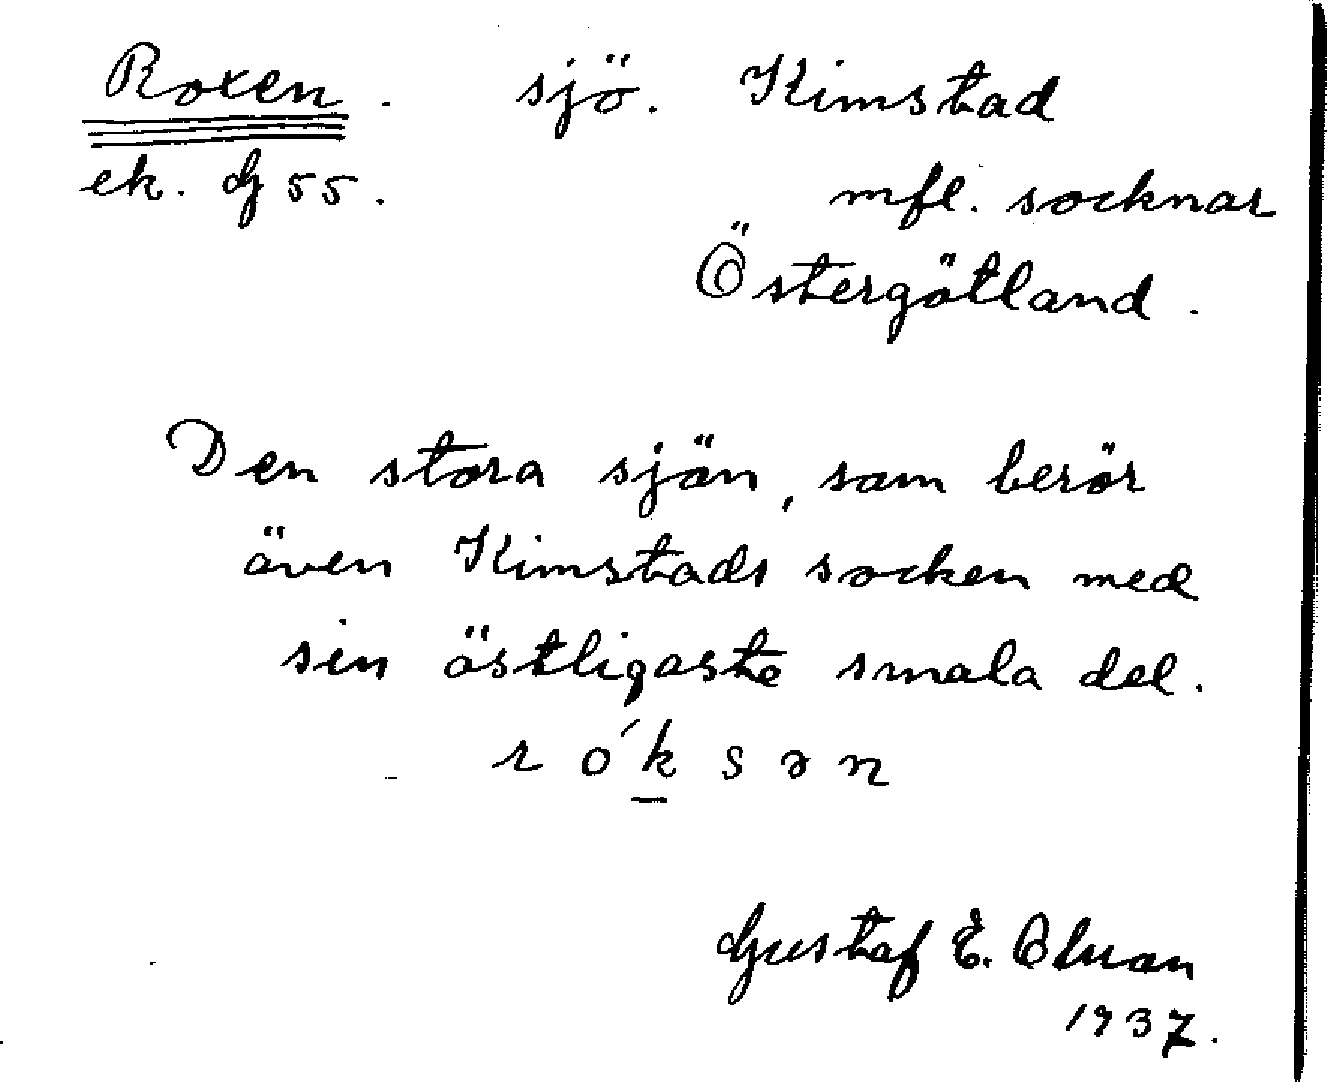 Roxen. sjö. Kimstad
ek. G 55. mfl. socknar
Östergötland.
Den stora sjön, som berör
även Kimstads socken med
sin östligaste smala del.
ró̱ksən
Gustaf E.
1937.